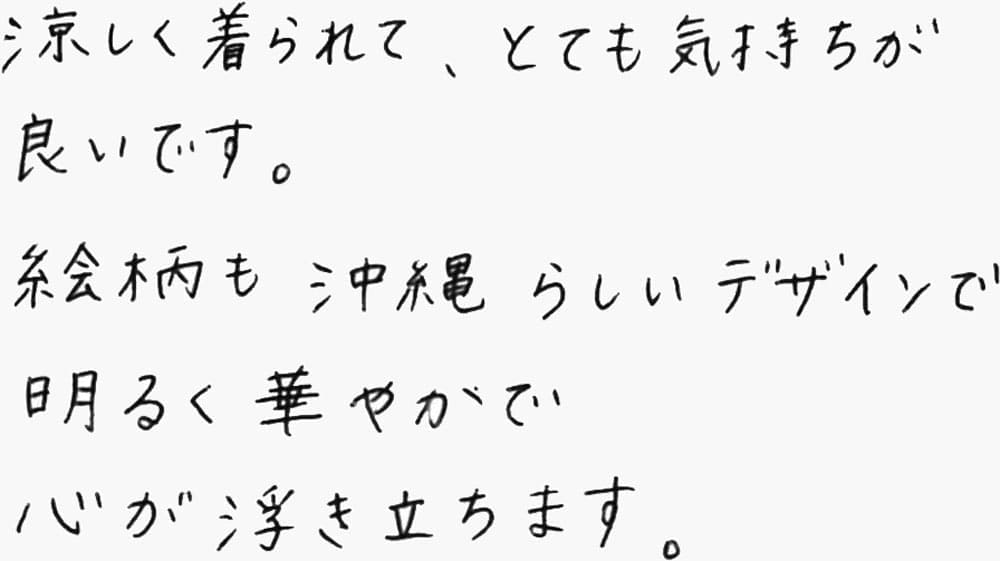 涼しく着られて、とても気持ちが
良いです。
絵柄も沖縄らしいデザインで
明るく華やかで
心が浮き立ちます。